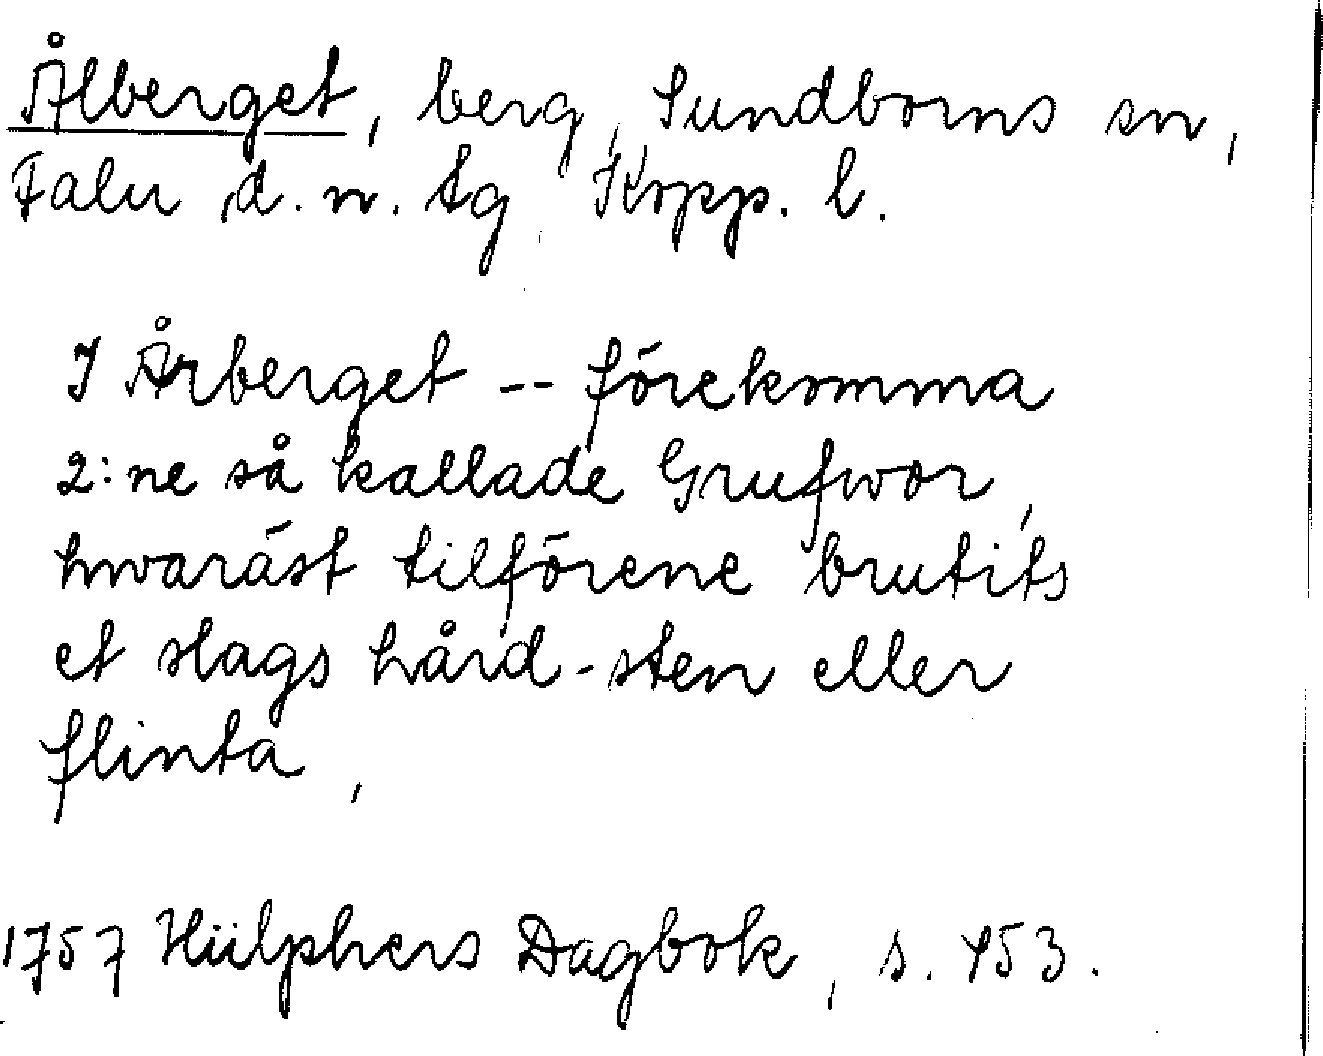 Ålberget, berg, Sundborns sn,
Falu d. n. tg Kopp. l.
I Årberget -- förekomma
2:ne så kallade Grufwor,
hwaräst tilförene brutits
et slags hård-sten eller
flinta,
1757 Hülphers Dagbok, s. 453.